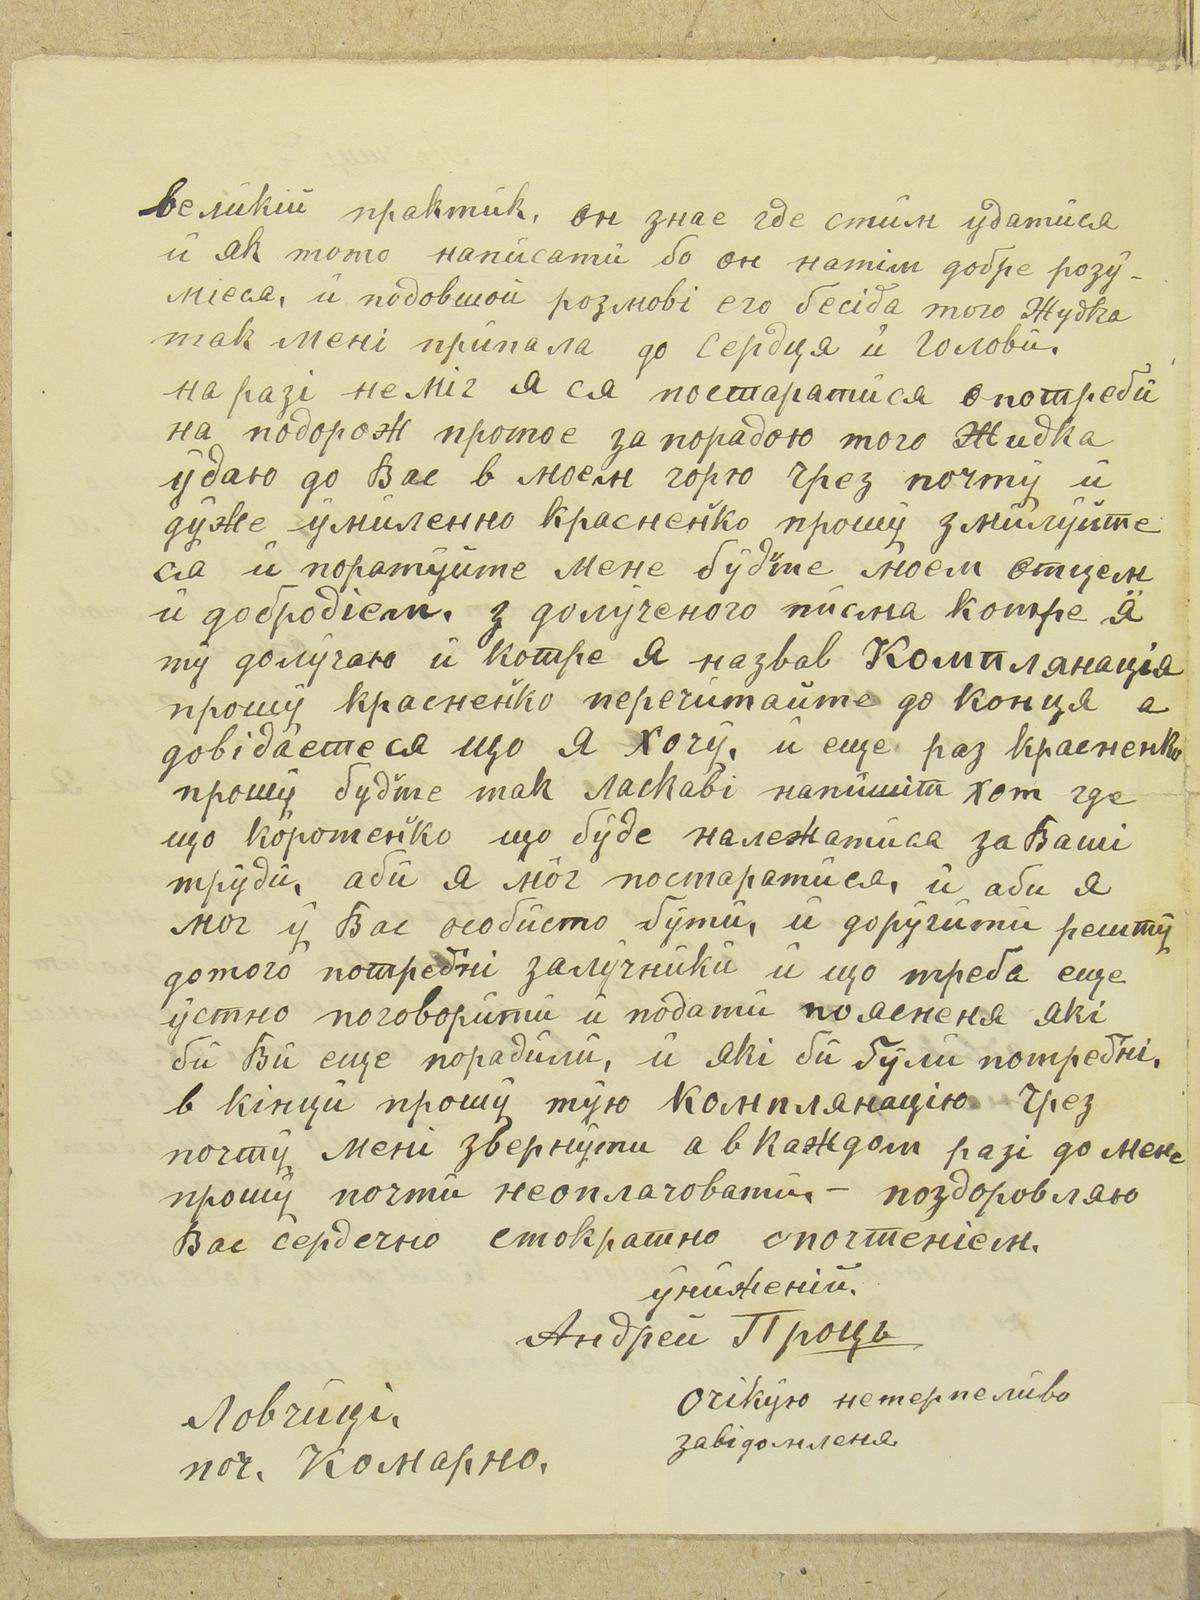 великій практик, он знае где стим удатися
й як тото написати бо он натім добре розу-
міеся, й подовшой розмові его бесіда того Жудка
так мені припала до Сердця й Голови.
на разі не міг я ся постаратися о потреби
на подорож протое за порадою того Жидка
удаю до Вас в моем горю Чрез почту й
дуже умиленно красненко прошу змилуйте
ся й поратуйте мене будте моем отцем
й добродіем. з долученого писма котре я
ту долучаю й котре я назвав Комплянація
прошу красненко перечитайте до конця а
довідаетеся що я хочу, й еще раз красненко
прошу будте так ласкаві напишіт хот где
що коротенко що буде належатися за Ваші
труди, аби я мог постаратися, й аби я
мог у Вас особисто бути, й доручити решту
дотого потребні залучники й що треба еще
устно поговорити й подати поясненя які
би Ви еще порадили, й які би були потребні.
в кінци прошу тую комплянацію Чрез
почту мені звернути а в каждом разі до мене
прошу почти неоплачовати. – поздоровляю
Вас сердечно стократно спочтеніем.
униженій.
Андрей Проць
Ловчиці.
поч. Комарно.
Очікую нетерпеливо
завідомленя.